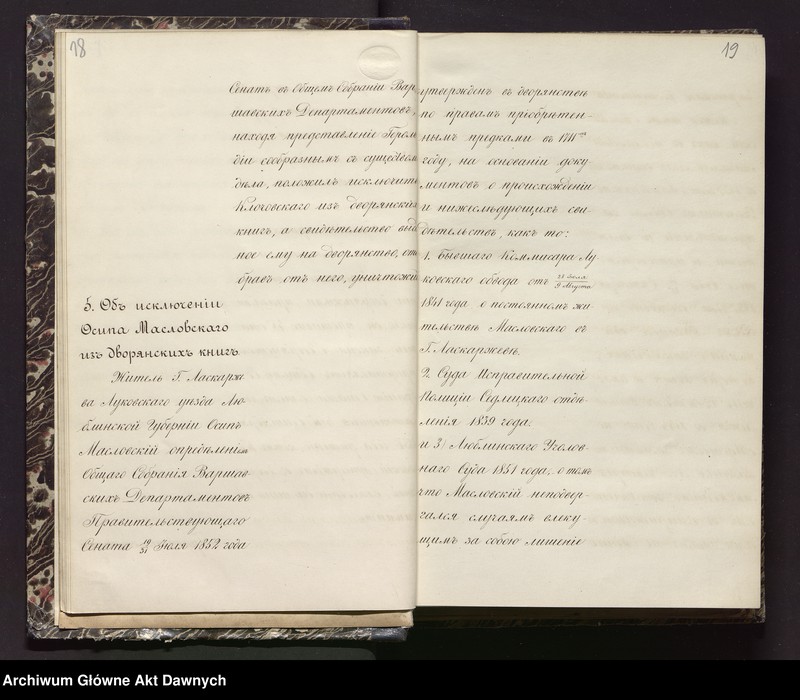 18
Сенатъ въ Общемъ Собраніи Вар
шавскихъ Департаментовъ,
находя представленіе Герол
діи сообразнымъ съ существом
дѣла, положилъ исключить
Клочовскаго изъ дворянских
книгъ, а свидѣтельство выда
ное ему на дворянство, ото
бравъ отъ него, уничтожить
5. Объ исключеніи
Осипа Масловскаго
изъ дворянскихъ книгъ.
Житель Г. Ласкарже
ва Луковскаго уѣзда Лю-
блинской Губерніи Осипъ
Масловскій опредѣленіем
Общаго Собранія Варшав
скихъ Департаментовъ
Правительствующаго
Сената 19/31 Іюля 1852 года
19
утвержденъ въ дворянствѣ
по правамъ пріобрѣтен-
нымъ предками въ
году, на основаніи доку
ментовъ о происхожденіи
и нижеслѣдующихъ сви-
дѣтельствъ, какъ то:
1. Бывшаго Коммисара Лу
ковскаго обвода отъ 28 Іюля/9 Августа
1841 года, о постоянномъ жи
тельствѣ Масловскаго въ
Г. Ласкаржевѣ.
2. Суда Исправительной
Полиціи Сѣдлецкаго отдѣ-
ленія 1839 года.
и 3) Люблинскаго Уголов-
наго Суда 1851 года, о томъ
что Масловскій неподвер-
гался случаямъ влеку-
щимъ за собою лишеніе
Archiwum Główne Akt Dawnych